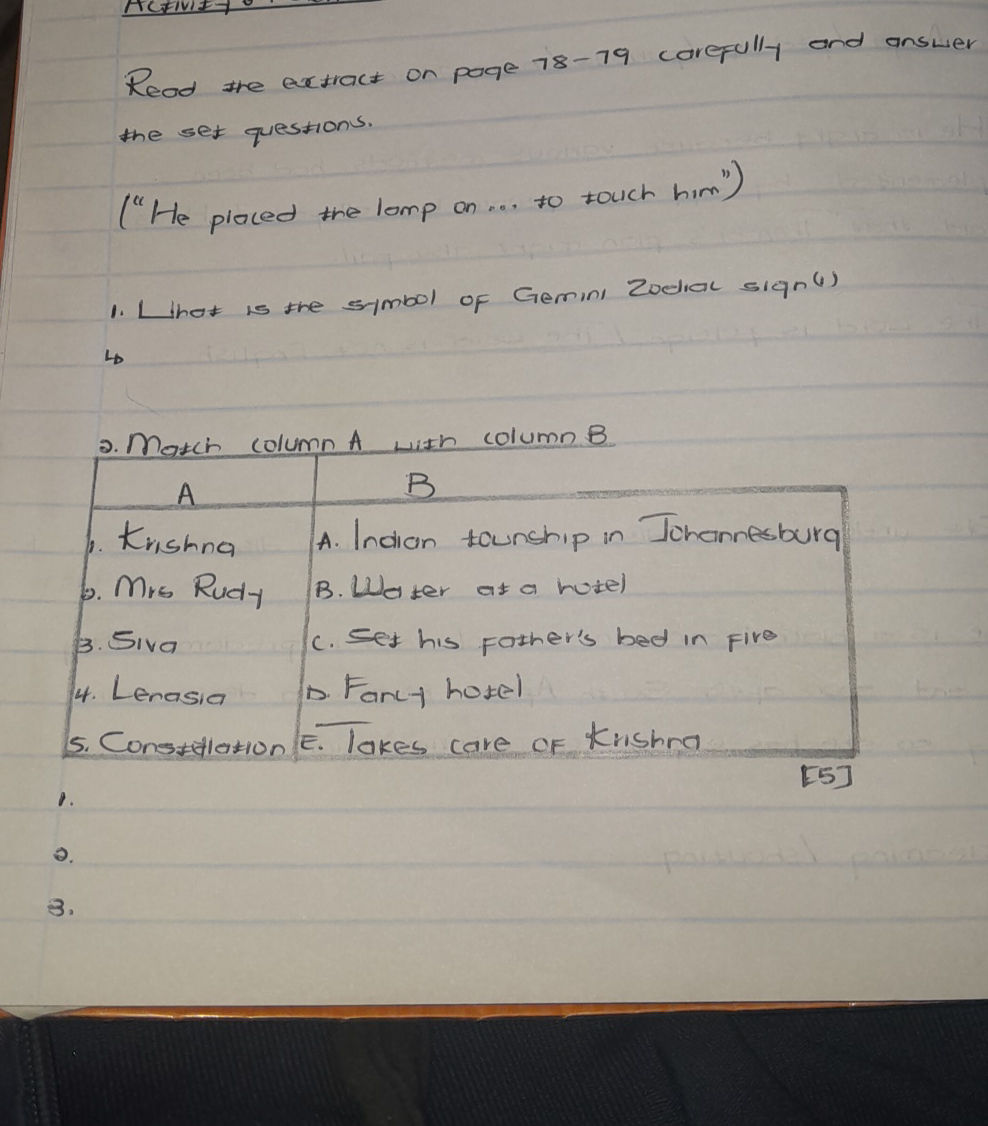 Read the extract on page 78-79 carefully and answer
the set questions.
("He placed the lamp on... to touch him")
1. What is the symbol of Gemini Zodiac sign(1)
↳
2. Match column A with column B
A B
1. Krishna A. Indian township in Johannesburg
2. Mrs Rudy B. Water at a hotel
3. Siva C. Set his father's bed in fire
4. Lenasia D. Fancy hotel
5. Constellation E. Takes care of Krishna
[5]
1.
2.
3.